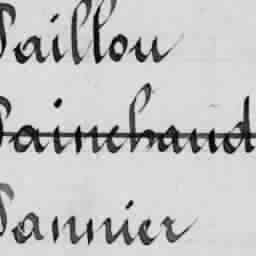 Paillou
Painchaud
Pannier